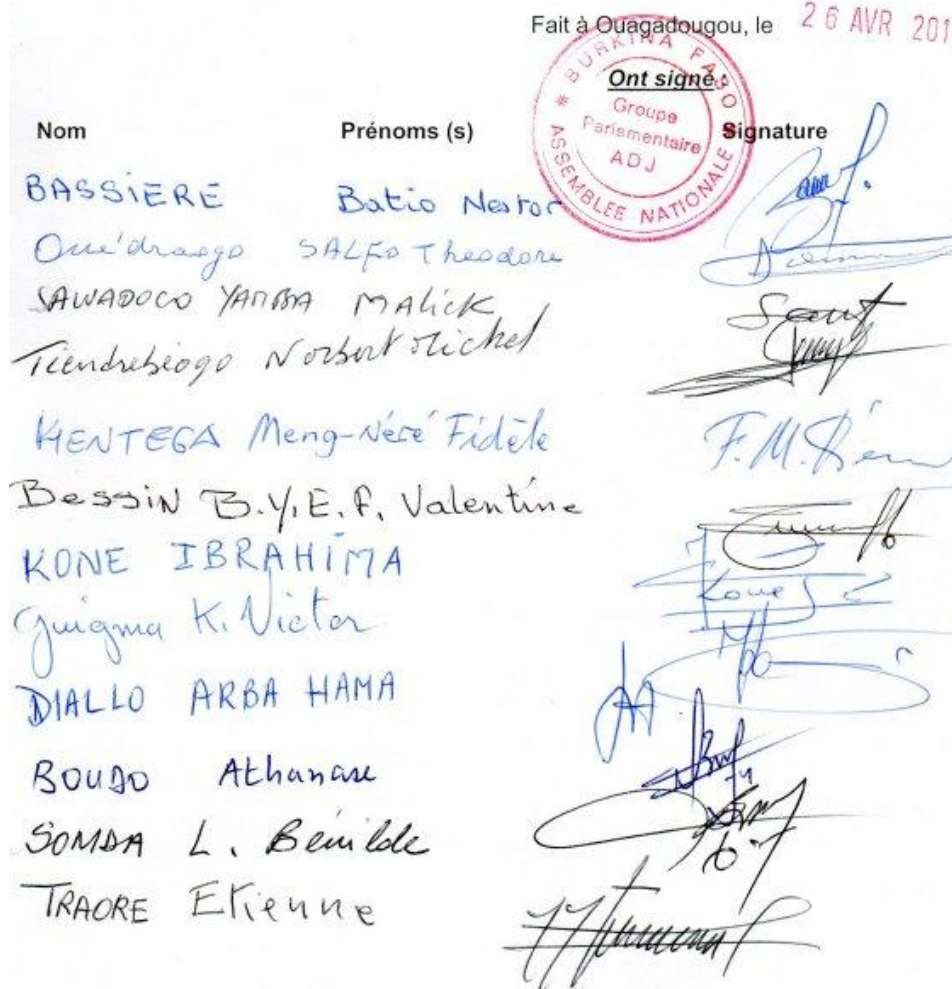 Fait à Ouagadougou, le 26 AVR 201
BURKINA FASO
* ASSEMBLEE NATIONALE *
Groupe
Parlementaire
ADJ
Ont signé :
Nom Prénoms (s) Signature
BASSIERE Batio Nestor
Ouédraogo SALFO Theodore
SAWADOGO YAMBA MALICK
Tiendrebéogo Norbert Michel
HIENTEGA Meng-Néré Fidèle
F.M.
Bessin B.Y.E.F. Valentine
KONE IBRAHIMA
Kone
Guigma K. Victor
DIALLO ARBA HAMA
BOUDO Athanase
SOMDA L. Bénilde
TRAORE Etienne